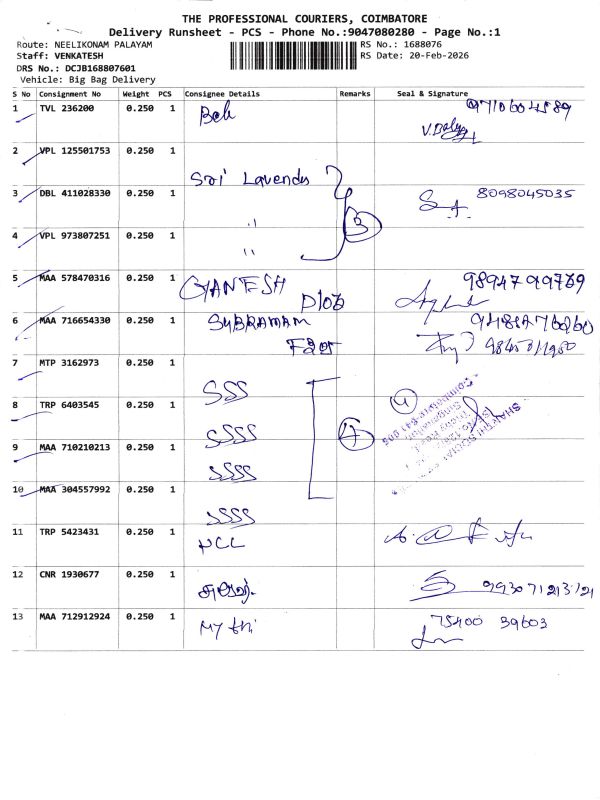 THE PROFESSIONAL COURIERS, COIMBATORE
Delivery Runsheet - PCS - Phone No.:9047080280 - Page No.:1
Route: NEELIKONAM PALAYAM
RS No.: 1688076
Staff: VENKATESH
RS Date: 20-Feb-2026
DRS No.: DCJB168807601
Vehicle: Big Bag Delivery
S No Consignment No Weight PCS Consignee Details Remarks Seal & Signature
1 TVL 236200 0.250 1
2 VPL 125501753 0.250 1
Sri Lavender
3 DBL 411028330 0.250 1 " 3 8098045035
4 VPL 973807251 0.250 1 "
5 MAA 578470316 0.250 1 GYANESH 9894799769
6 MAA 716654330 0.250 1 SUBRAMAM
7 MTP 3162973 0.250 1 SSS
8 TRP 6403545 0.250 1 SSSS 4
9 MAA 710210213 0.250 1 SSSS
10 MAA 304557992 0.250 1 SSSS
11 TRP 5423431 0.250 1
12 CNR 1930677 0.250 1
13 MAA 712912924 0.250 1 75400 39603